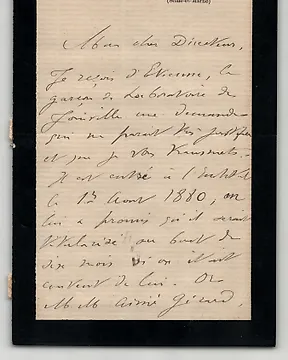 (Seine-et-Marne)
Mon cher Directeur,
Je reçois d'Etienne, le
garçon de Laboratoire de
Joinville une demande
qui me parait très justifiée
et que je vous transmets.
Il est entré à l'Institut
le 1er Aout 1880, on
lui a promis qu'il serait
titularisé au bout de
dix mois si on était
content de lui. Or
M M Aimé Gérard,